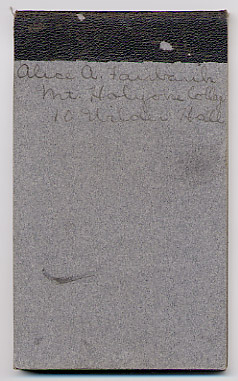 Alice A. Fairbanks
Mt. Holyoke Colleg
10 Wilder Hall